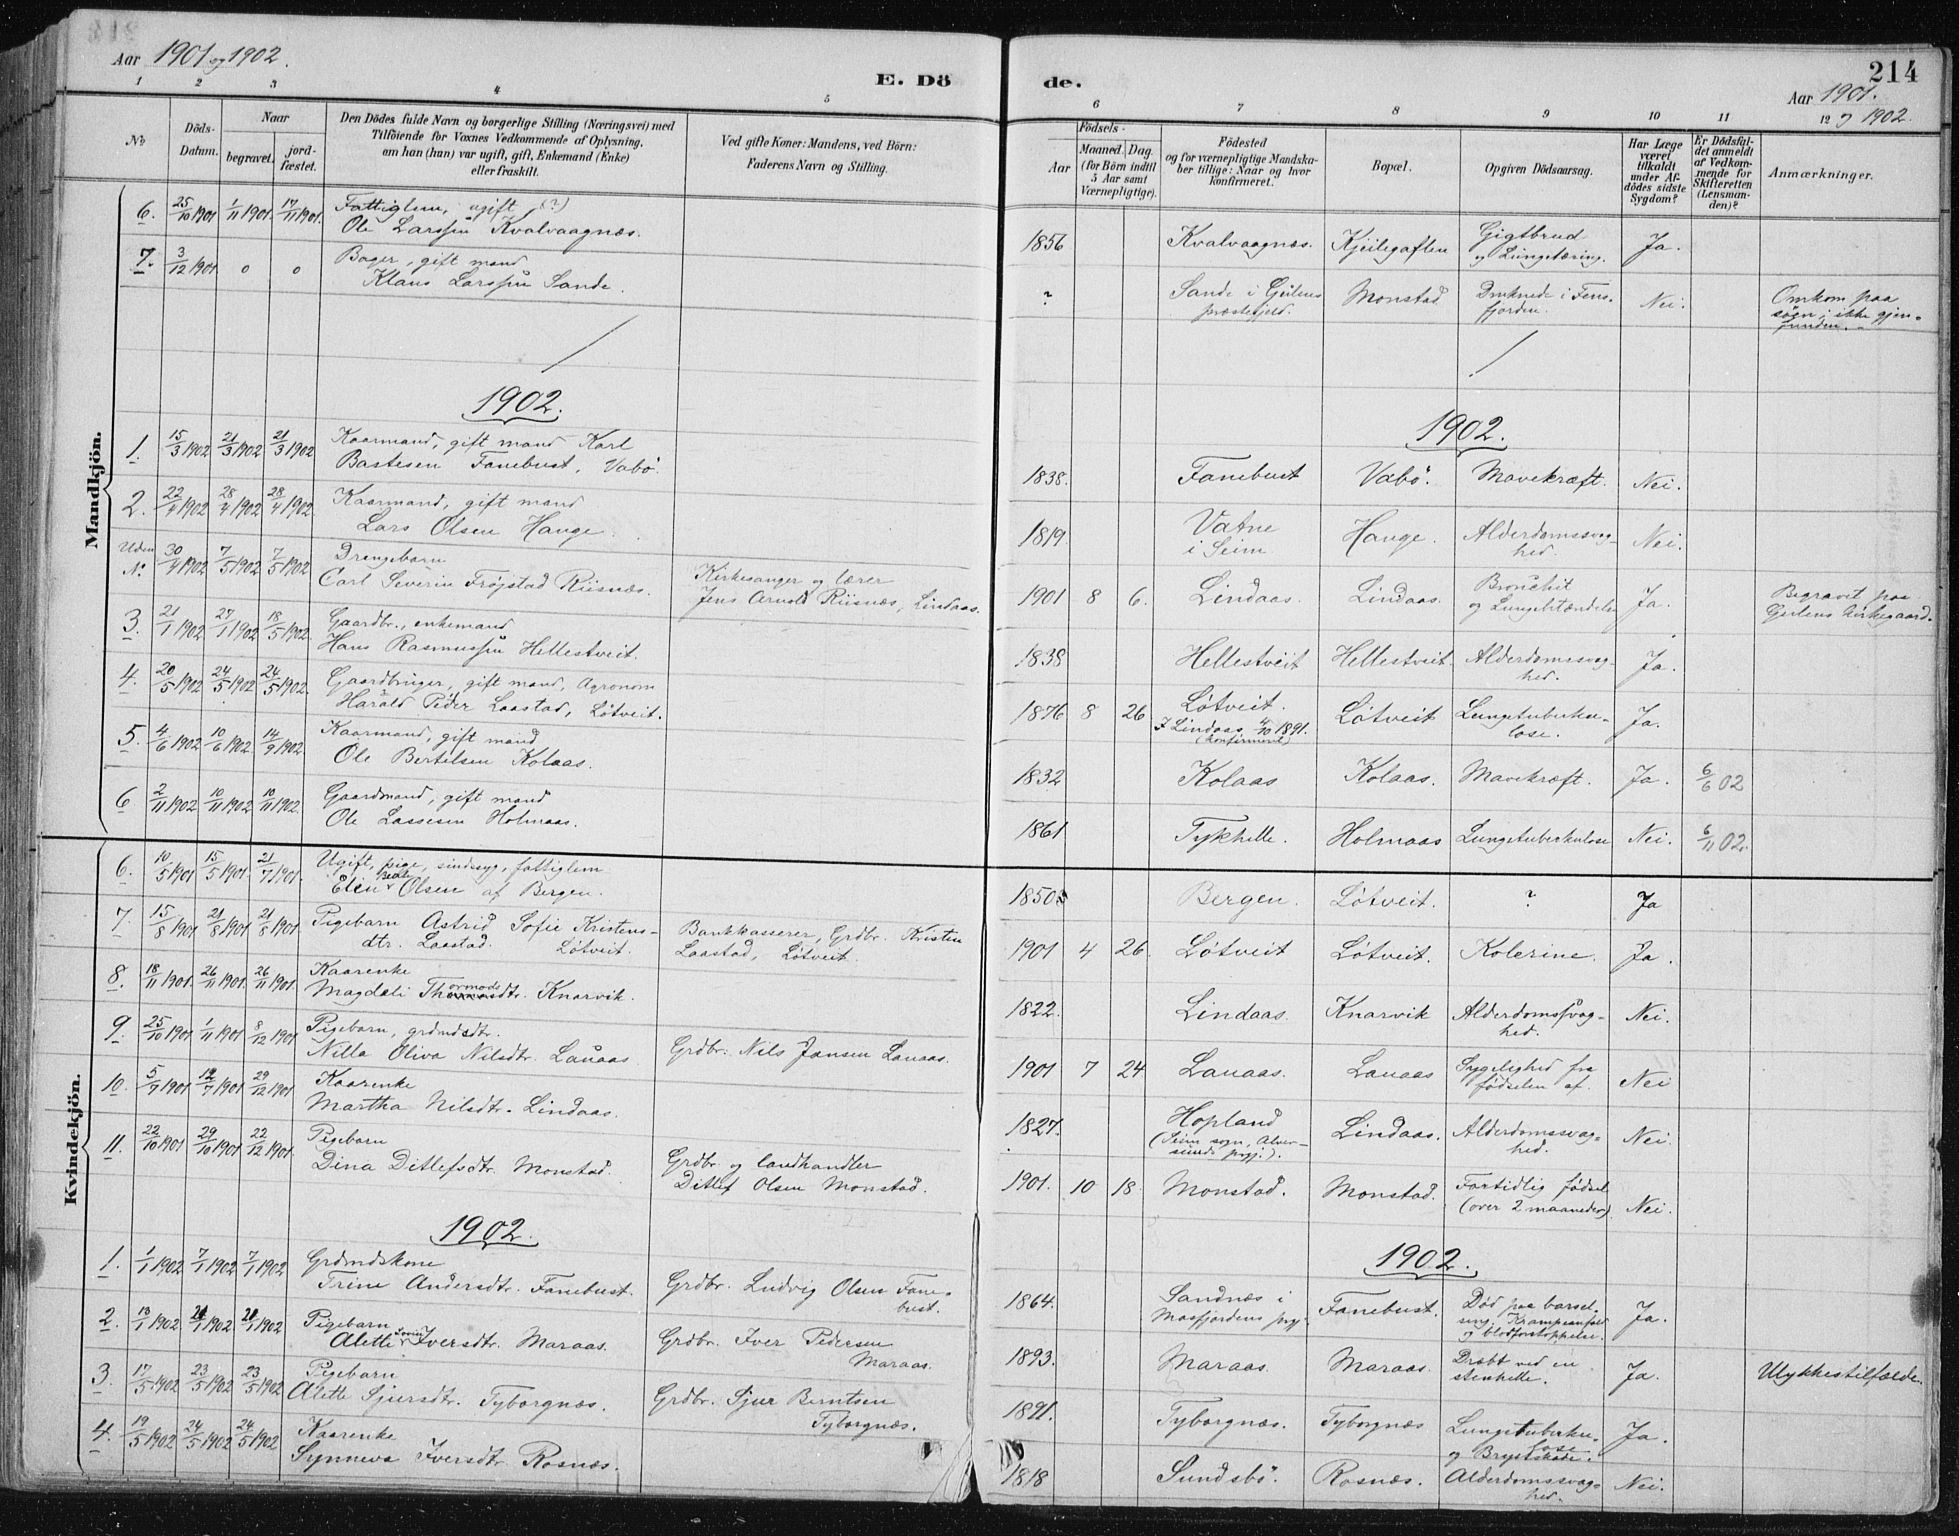 Aar 1901 og 1902.
E. Dö
de.
214
Aar 1901.
og 1902.
1 2 3 4 5 6 7 8 9 10 11 12
No
Döds-Datum.
Naar
begravet.
jord-fæstet.
Den Dödes fulde Navn og borgerlige Stilling (Næringsvei) med
Tilföiende for Voxnes Vedkommende af Oplysning,
om han (hun) var ugift, gift, Enkemand (Enke)
eller fraskilt.
Ved gifte Koner: Mandens, ved Börn:
Faderens Navn og Stilling.
Födsels-
Aar
Maaned. Dag.
(for Börn indtil
5 Aar samt
Værnepligtige).
Födested
og for værnepligtige Mandska-
ber tillige: Naar og hvor
konfirmeret.
Bopæl.
Opgiven Dödsaarsag.
Har Læge
været
tilkaldt
under Af-
dödes sidste
Sygdom?
Er Dödsfal-
det anmeldt
af Vedkom-
mende for
Skifteretten
(Lensman-
den)?
Anmærkninger.
Mandkjön.
6. 25/10 1901 1/11 1901. 17/11 1901. Fattiglem, ugift (?)
Ole Larssen Kvalvaagnæs.
1856 Kvalvaagnæs. Kjeilegaflen Gigtbrud
og Lungetæring. Ja.
7. 3/12 1901 o o Bager, gift mand
Klaus Larssen Sande.
? Sande i Gulens
præstegjeld. Monstad Druknede i Fens-
fjorden. Nei. Omkom paa
søen; ikke gjen-
funden.
1902.
1902.
1. 15/3 1902 21/3 1902 21/3 1902 Kaarmand, gift mand Karl
Bastesen Fanebust, Vabö.
1838. Fanebust Vabö. Mavekræft. Nei.
2. 22/4 1902 28/4 1902 28/4 1902. Kaarmand, gift mand
Lars Olsen Hauge.
1819. Vatne
i Seim Hauge. Alderdomssvag-
hed. Nei.
Uden
No 30/4 1902 7/5 1902 7/5 1902 Drengebarn
Carl Severin Frøystad Riisnæs.
Kirkesanger og lærer
Jens Arnold Riisnæs, Lindaas.
1901 8 6. Lindaas. Lindaas. Bronchit
og Lungebetændelse Ja. Begravet paa
Gulens kirkegaard.
3. 21/1 1902 27/1 1902 18/5 1902. Gaardbr., enkemand
Hans Rasmussen Hellestveit.
1838 Hellestveit Hellestveit. Alderdomssvag-
hed. Ja.
4. 20/5 1902 24/5 1902 24/5 1902. Gaardbruger, gift mand, Agronom
Harald Peder Laastad, Løtveit.
1876 8 26 Løtveit.
I Lindaas 4/10 1891.
(konfirmeret) Løtveit Lungetuberku-
lose. Ja.
5. 4/6 1902 10/6 1902. 14/9 1902 Kaarmand, gift mand
Ole Bertelsen Kolaas.
1832 Kolaas Kolaas. Mavekræft. Ja. 6/6 02
6 2/11 1902 10/11 1902 10/11 1902. Gaardmand, gift mand
Ole Lassesen Holmaas.
1861 Tykhelle. Holmaas Lungetuberkulose Nei. 6/11 02.
Kvindekjön.
6. 10/5 1901 15/5 1901. 21/7 1901. Ugift, pige, sindssyg, fattiglem
Elen Beate Olsen af Bergen.
1850 Bergen. Løtveit. ? Ja
7. 15/8 1901 21/8 1901 21/8 1901 Pigebarn Astrid Sofie Kristens-
dtr. Laastad. Løtveit.
Bankkasserer, Grdbr. Kristen
Laastad, Løtveit.
1901 4 26. Løtveit Løtveit. Kolerine. Ja.
8. 18/11 1901. 26/11 1901 26/11 1901. Kaarenke
Magdeli Thormodsdtr. Knarvik.
1822. Lindaas. Knarvik Alderdomssvag-
hed. Nei.
9. 25/10 1901 1/11 1901 8/12 1901. Pigebarn, grdmdsdtr.
Nilla Oliva Nilsdtr. Lauaas
Grdbr. Nils Jansen Lauaas.
1901 7 24 Lauaas. Lauaas Sygelighed fra
fødselen af. Nei
10. 5/7 1901 12/7 1901 29/12 1901 Kaarenke
Martha Nilsdtr. Lindaas.
1827. Hopland
(Seim sogn, Alver-
sunds prgj.). Lindaas. Alderdomssvag-
hed. Nei.
11. 22/10 1901 29/10 1901 22/12 1901. Pigebarn
Dina Ditlefsdtr. Monstad.
Grdbr. og landhandler
Ditlef Olsen Monstad.
1901. 10 18. Monstad. Monstad. Fortidlig fødsel
(over 2 maaneder). Nei.
1902.
1902.
1. 1/1 1902 7/1 1902 7/1 1902 Grdmdskone
Trine Andersdtr. Fanebust.
Grdbr. Ludvig Olsen Fane-
bust.
1864. Sandnæs i
Masfjordens prgj. Fanebust. Død paa barsel-
seng. Krampeanfald
og blodforstoppelse. Ja.
2. 13/1 1902 21/1 1902 21/1 1902 Pigebarn
Alette Iversdtr. Maraas.
Grdbr. Iver Pedersen
Maraas.
1893. Maraas. Maraas. Dræbt ved en
stenhelle. Ja. Ulykkestilfælde.
3. 17/5 1902 23/5 1902 23/5 1902. Pigebarn
Alette Sjursdtr. Tyborgnæs.
Grdbr. Sjur Berntsen
Tyborgnæs.
1891. Tyborgnæs. Tyborgnæs Lungetuberku-
lose
og Brystskade. Ja.
4. 19/5 1902 24/5 1902 24/5 1902 Kaarenke
Synneva Iversdtr Rosnæs.
1818 Sundsbö. Rosnæs. Alderdomssvag-
hed. Nei.